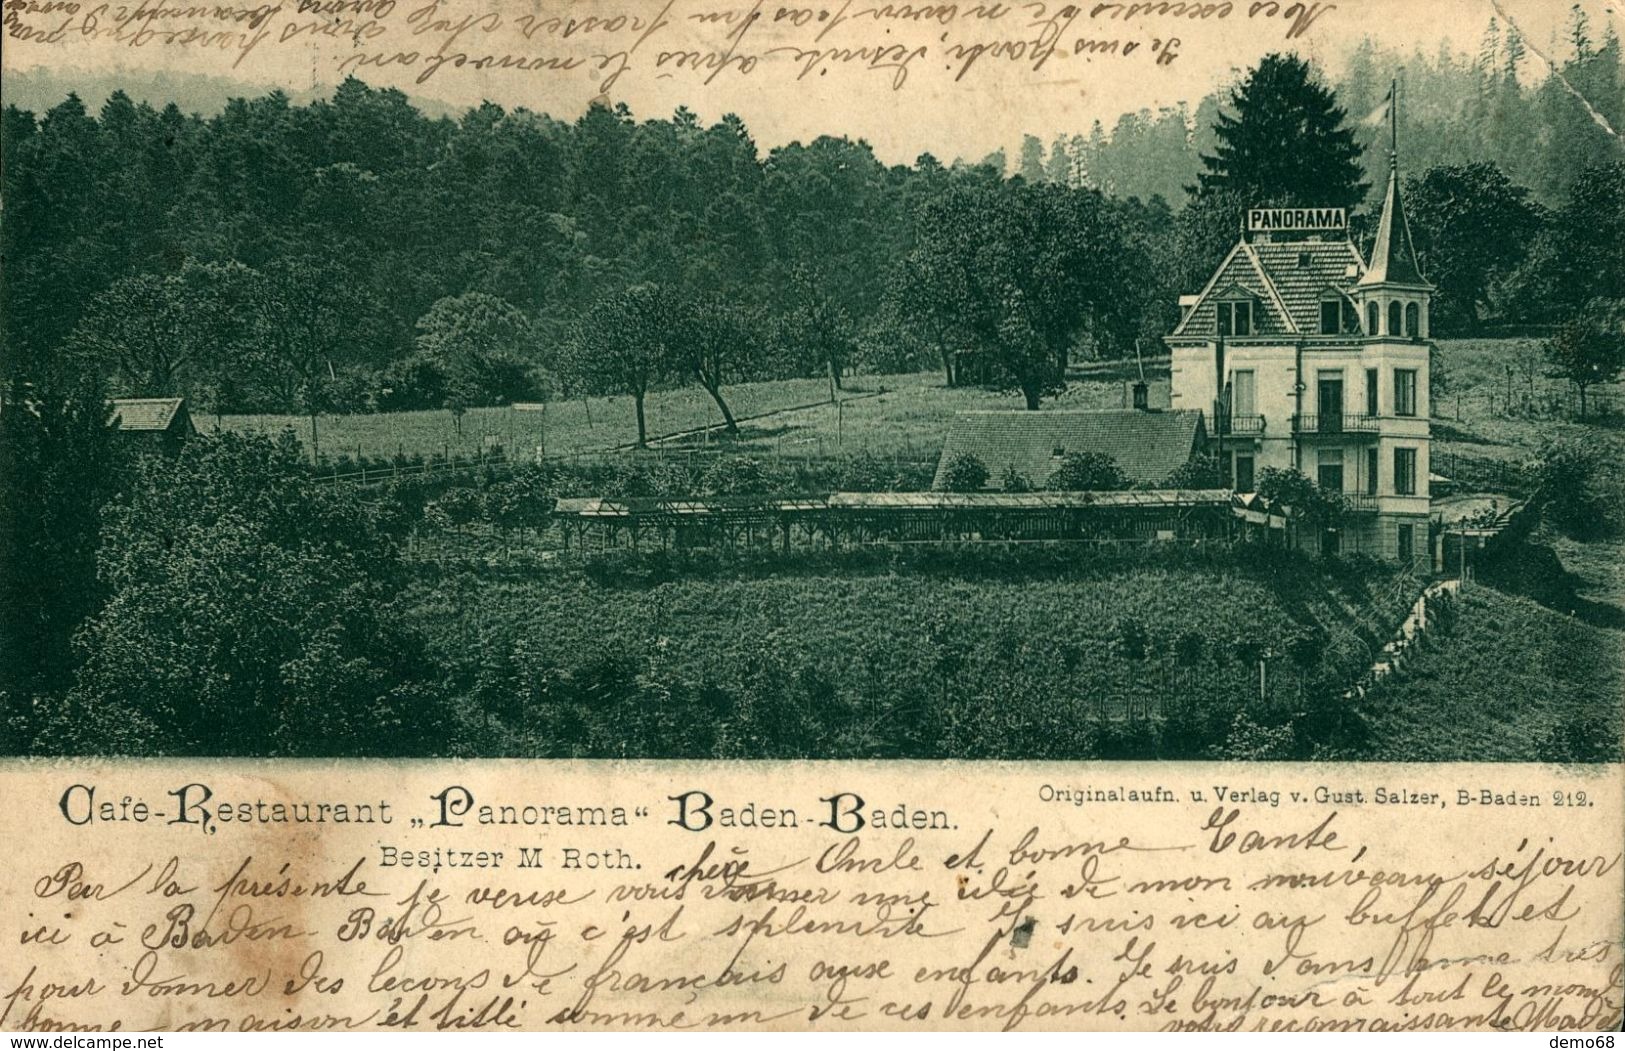 Mes excuses de n'avoir pas
Je suis parti, desuite après le nouvel an.
PANORAMA
Café-Restaurant „Panorama“ Baden-Baden.
Originalaufn. u. Verlag v. Gust. Salzer, B-Baden 212.
Besitzer M Roth.
chère Oncle et bonne Tante,
Par la présente je veuse vous donner une idée de mon nouveau séjour
ici à Baden-Baden où c'est splendite Je suis ici au buffet et
pour donner des leçons de français aux enfants. Je suis dans une très
bonne maison et titlé comme un de ces enfants. Le bonjour à tout le monde
votre reconnaissante
delcampe.net
demo68